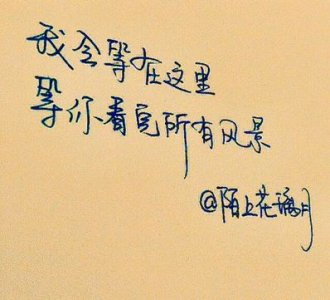 我会等在这里
等你看完所有风景
@陌上花漪月